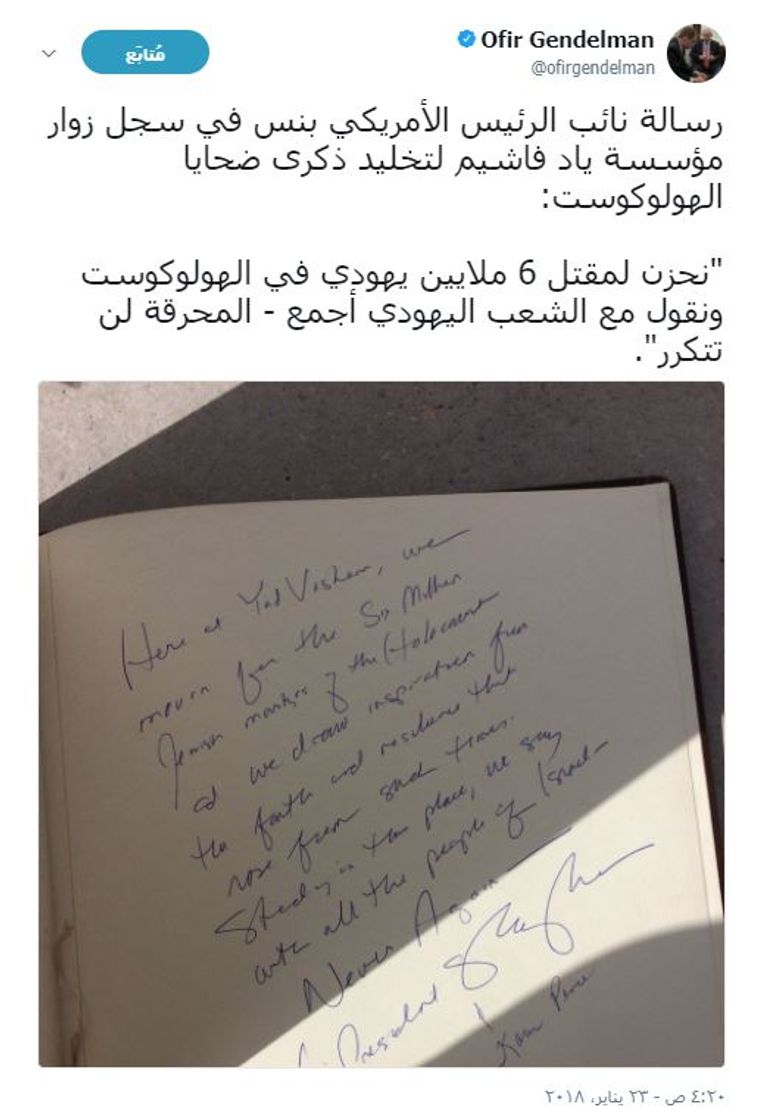 Ofir Gendelman
@ofirgendelman
مُتابَع
رسالة نائب الرئيس الأمريكي بنس في سجل زوار
مؤسسة ياد فاشيم لتخليد ذكرى ضحايا
الهولوكوست:
"نحزن لمقتل 6 ملايين يهودي في الهولوكوست
ونقول مع الشعب اليهودي أجمع - المحرقة لن
تتكرر".
Here at Yad Vashem, we
mourn for the Six Million
Jewish martyrs of the Holocaust
and we draw inspiration from
the faith and resilience that
rose from such times.
in this place, we say
with all the people of Israel-
Never Again
President
Karen Pence
٤:٢٠ ص - ٢٣ يناير، ٢٠١٨